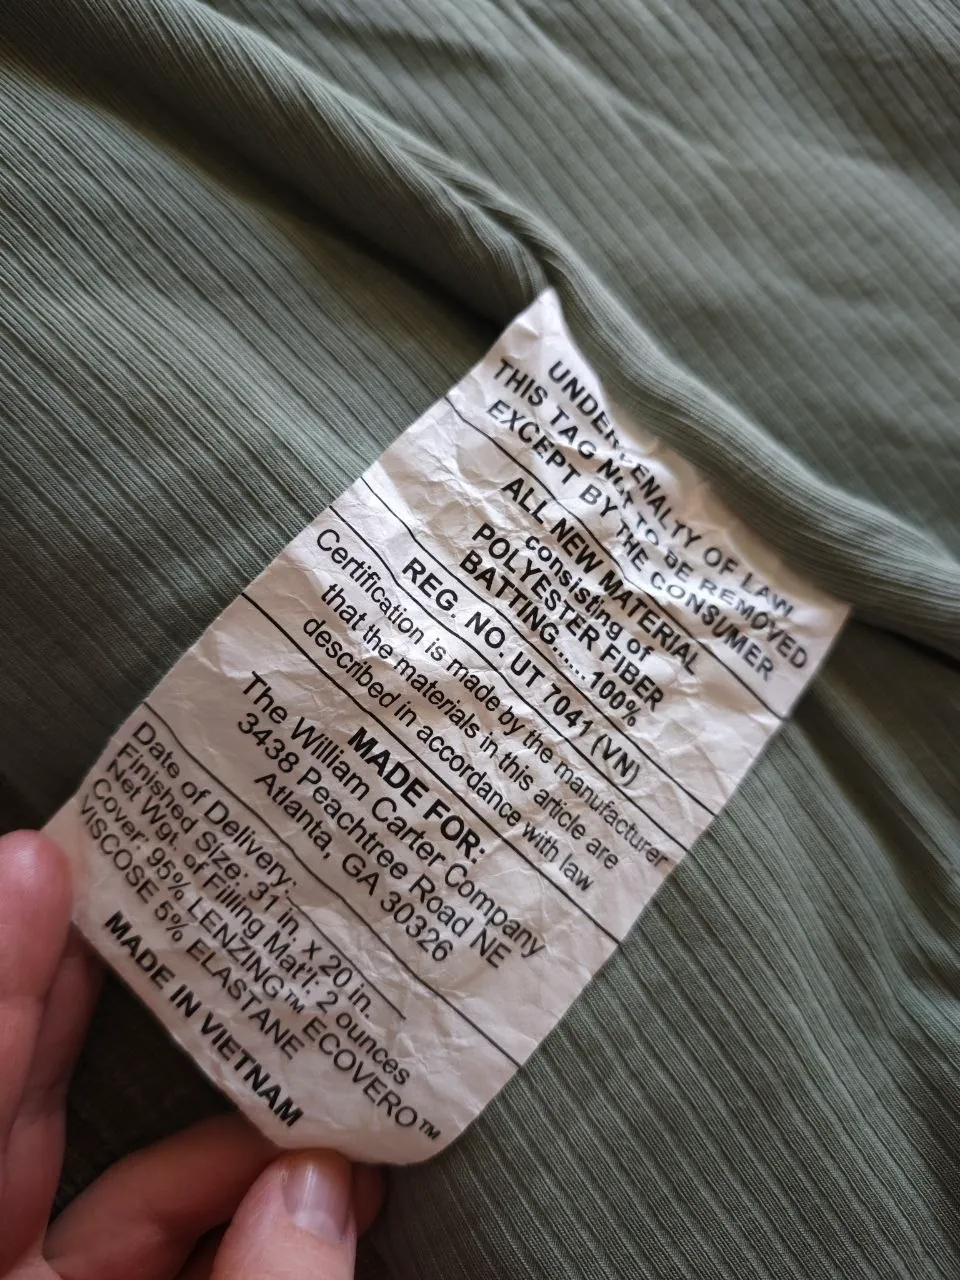 UNDER PENALTY OF LAW
THIS TAG NOT TO BE REMOVED
EXCEPT BY THE CONSUMER
ALL NEW MATERIAL
consisting of
POLYESTER FIBER
BATTING......100%
REG. NO. UT 7041 (VN)
Certification is made by the manufacturer
that the materials in this article are
described in accordance with law
MADE FOR:
The William Carter Company
3438 Peachtree Road NE
Atlanta, GA 30326
Date of Delivery:
Finished Size: 31 in. x 20 in.
Net Wgt. of Filling Mat'l: 2 ounces
Cover: 95% LENZING™ ECOVERO™
VISCOSE 5% ELASTANE
MADE IN VIETNAM